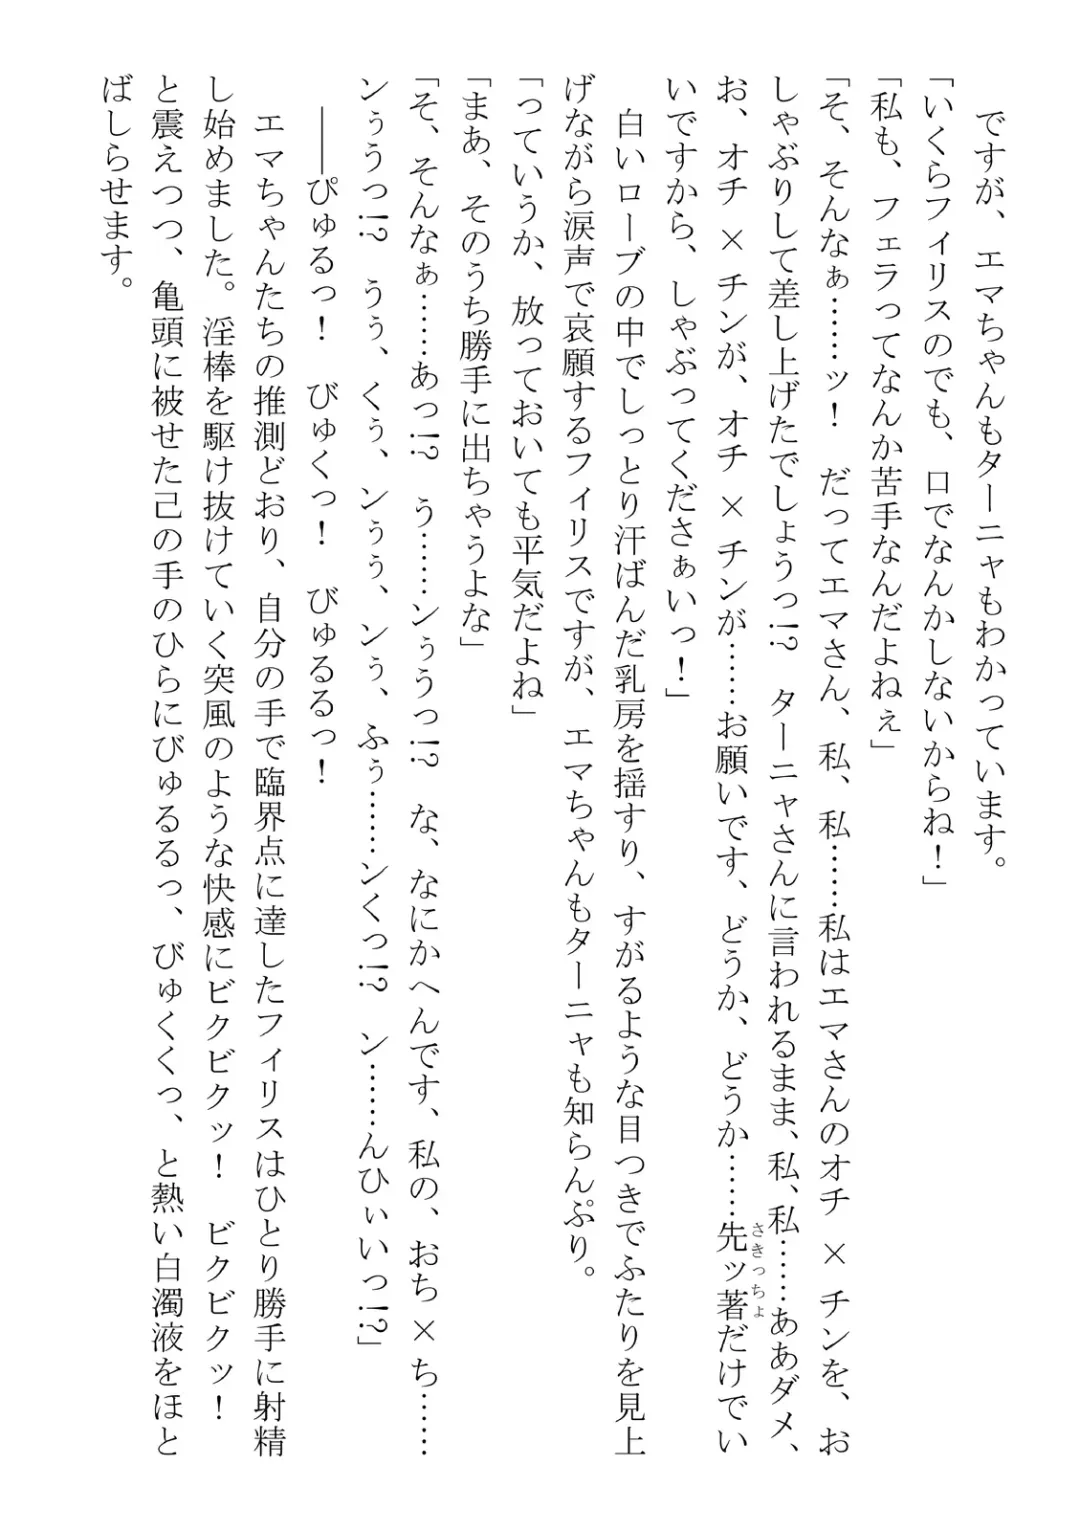 ですが、エマちゃんもターニャもわかっています。
「いくらフィリスのでも、口でなんかしないからね！」
「私も、フェラってなんか苦手なんだよねぇ」
「そ、そんなぁ……ッ！　だってエマさん、私、私……私はエマさんのオチ×チンを、お
しゃぶりして差し上げたでしょうっ!?　ターニャさんに言われるまま、私、私……ああダメ、
お、オチ×チンが、オチ×チンが……お願いです、どうか、どうか……先ッ著さきっちょだけでい
いですから、しゃぶってくださぁいっ！」
　白いローブの中でしっとり汗ばんだ乳房を揺すり、すがるような目つきでふたりを見上
げながら涙声で哀願するフィリスですが、エマちゃんもターニャも知らんぷり。
「っていうか、放っておいても平気だよね」
「まあ、そのうち勝手に出ちゃうよな」
「そ、そんなぁ……あっ!?　う……ンぅうっ!?　な、なにかへんです、私の、おち×ち……
ンぅうっ!?　うぅ、くぅ、ンぅぅ、ンぅ、ふぅ……ンくっ!?　ン……んひぃいっ!?」
　――ぴゅるっ！　びゅくっ！　びゅるるっ！
　エマちゃんたちの推測どおり、自分の手で臨界点に達したフィリスはひとり勝手に射精
し始めました。淫棒を駆け抜けていく突風のような快感にビクビクッ！　ビクビクッ！
と震えつつ、亀頭に被せた己の手のひらにびゅるるっ、びゅくくっ、と熱い白濁液をほと
ばしらせます。